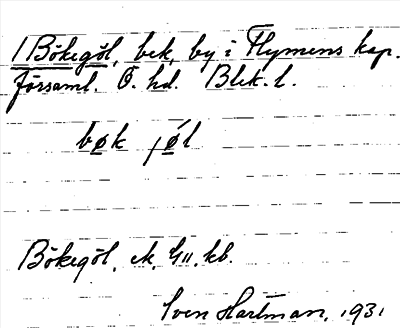 1 Bökegöl, bek, by i Flymens kap.
församl. Ö. hd. Blek. l.
bøk jǿl
Bökegöl, ek. G11. kb.
Sven Hartman, 1931